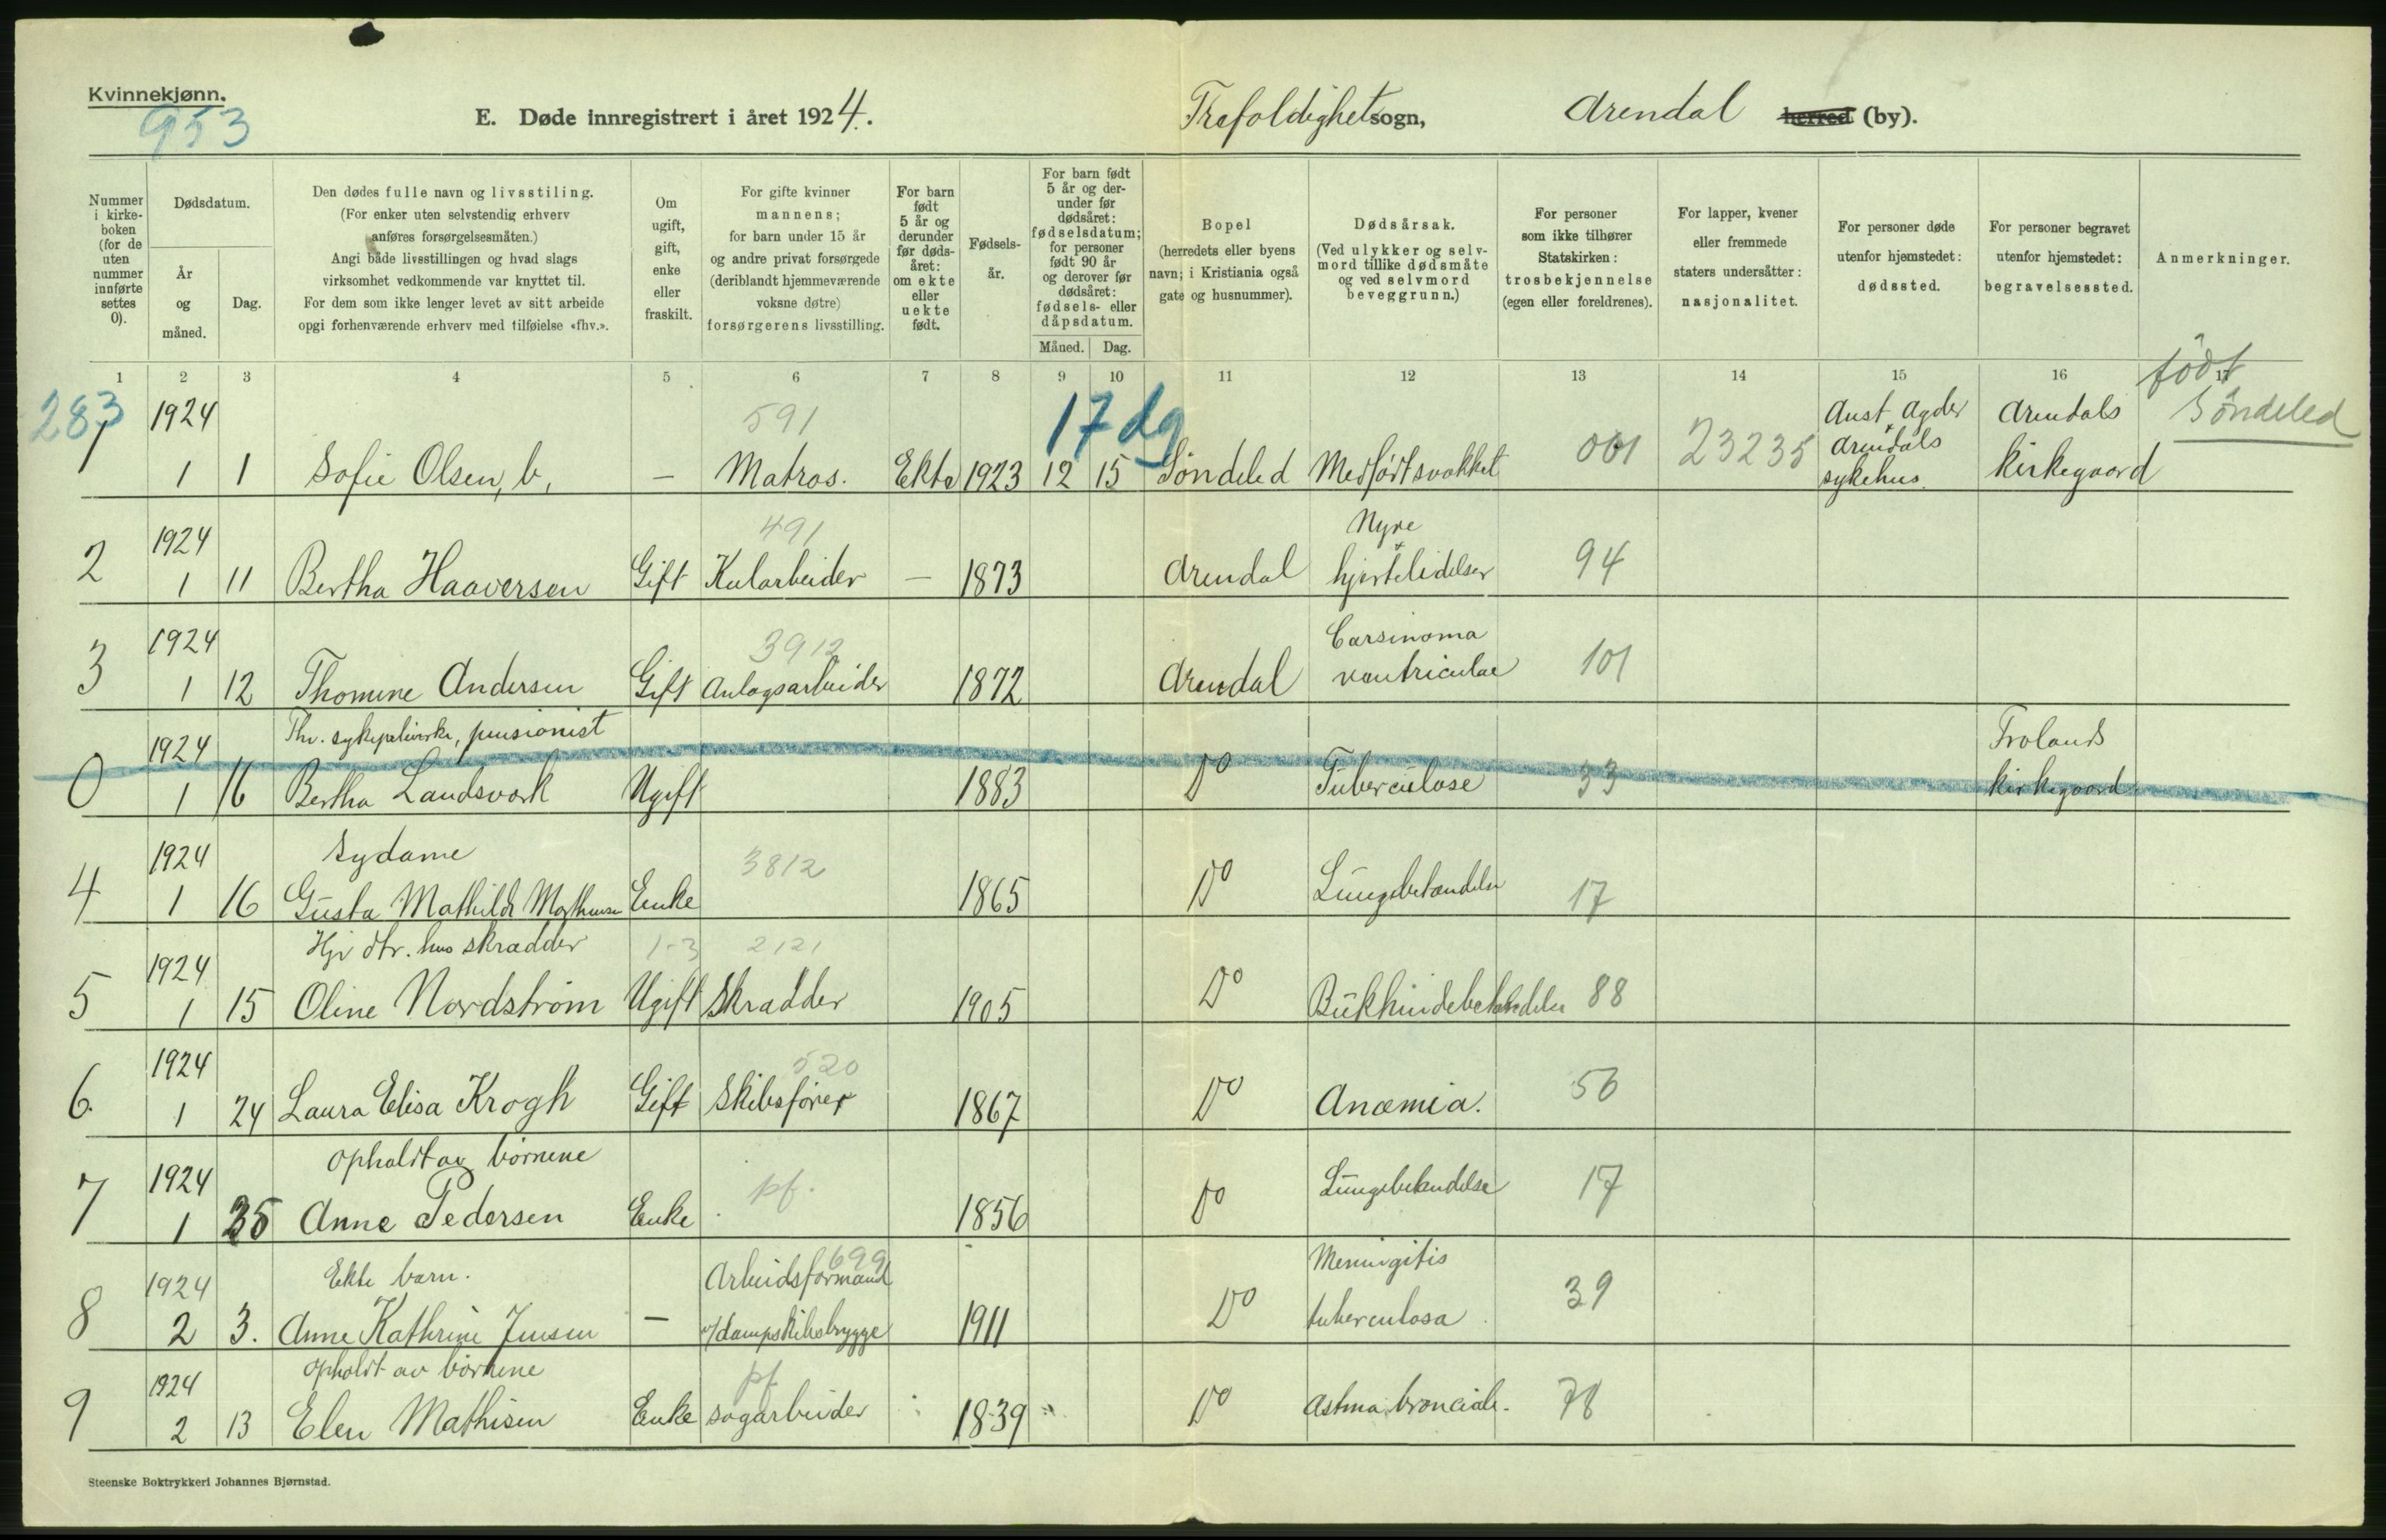 Kvinnekjønn.
953
E. Døde innregistrert i året 1924.
Trefoldighetsogn,
Arendal herred (by).
Nummer i kirke-boken (for de uten nummer innførte settes 0).
Dødsdatum.
År og måned.
Dag.
Den dødes fulle navn og livsstiling.
(For enker uten selvstendig erhverv
anføres forsørgelsesmåten.)
Angi både livsstillingen og hvad slags
virksomhet vedkommende var knyttet til.
For dem som ikke lenger levet av sitt arbeide
opgi forhenværende erhverv med tilføielse «fhv.».
Om ugift, gift, enke eller fraskilt.
For gifte kvinner
mannens;
for barn under 15 år
og andre privat forsørgede
(deriblandt hjemmeværende
voksne døtre)
forsørgerens livsstilling.
For barn født 5 år og derunder før døds-året: om ekte eller uekte født.
Fødsels-år.
For barn født 5 år og der-under før dødsåret: fødselsdatum; for personer født 90 år og derover før dødsåret: fødsels- eller dåpsdatum.
Måned. Dag.
Bopel
(herredets eller byens
navn; i Kristiania også
gate og husnummer).
Dødsårsak.
(Ved ulykker og selv-
mord tillike dødsmåte
og ved selvmord
beveggrunn.)
For personer
som ikke tilhører
Statskirken:
trosbekjennelse
(egen eller foreldrenes).
For lapper, kvener
eller fremmede
staters undersåtter:
nasjonalitet.
For personer døde
utenfor hjemstedet:
dødssted.
For personer begravet
utenfor hjemstedet:
begravelsessted.
Anmerkninger.
1 2 3 4 5 6 7 8 9 10 11 12 13 14 15 16 17
født
283 1924 591 17 dg Aust Agder Arendals Söndeled
1 1 1 Sofie Olsen, b, – Matros. Ekte 1923 12 15 Söndeled Medfödt svakket 001 23235 Arendals sykehus. kirkegaard
1924 491 Nyre +
2 1 11 Bertha Haaversen Gift Kularbeider – 1873 Arendal hjertelidelser 94
1924 3912 Carsinoma
3 1 12 Thomine Andersen Gift Anlagsarbeider 1872 Arendal ventriculae 101
1924 Fhv. sykepleierske, pensionist Frolands
0 1 16 Bertha Landsverk Ugift 1883 Do Tuberculose 33 kirkegaard
1924 Sydame 3812
4 1 16 Gusta Mathilde Mathisen Enke 1865 Do Lungebetændelse 17
1924 Hjv dtr. hus skrædder 1-3 2121
5 1 15 Oline Nordström Ugift Skrædder 1905 Do Bukhindebetændelse 88
1924 520
6. 1 24 Laura Elisa Krogh Gift Skibsförer 1867 Do Anæmia. 56
1924 Opholdt av börnene pf.
7 1 25 Anne Pedersen Enke 1856 Do Lungebetændelse 17
1924 Ekte barn. Arbeidsformand 699 Meningitis
8 2 3. Anne Kathrine Jensen – v/dampskibsbrygge 1911 Do tuberculosa 39
1924 Opholdt av börnene pf
9 2 13 Elen Mathisen Enke sagarbeider 1839 Do Astma bronciale. 78
Steenske Boktrykkeri Johannes Bjørnstad.